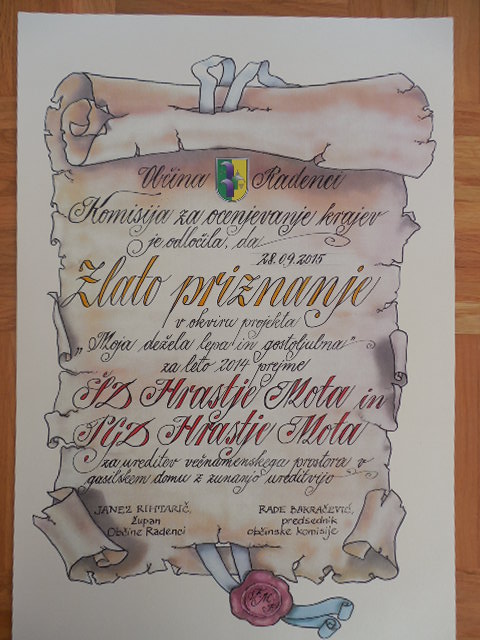 Občina Radenci
Komisija za ocenjevanje krajev
je odločila, da
28.09.2015
Zlato priznanje
v okviru projekta
„Moja dežela lepa in gostoljubna“
za leto 2014 prejme
ŠD Hrastje Mota in
PGD Hrastje Mota
za ureditev večnamenskega prostora v
gasilskem domu z zunanjo ureditvijo
JANEZ RIHTARIČ,
župan
Občine Radenci
RADE BAKRAČEVIĆ,
predsednik
občinske komisije